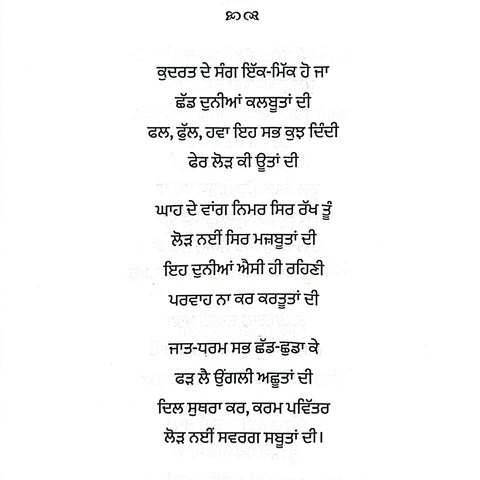 ਕੁਦਰਤ ਦੇ ਸੰਗ ਇੱਕ-ਮਿੱਕ ਹੋ ਜਾ
ਛੱਡ ਦੁਨੀਆਂ ਕਲਬੂਤਾਂ ਦੀ
ਫਲ, ਫੁੱਲ, ਹਵਾ ਇਹ ਸਭ ਕੁਝ ਦਿੰਦੀ
ਫੇਰ ਲੋੜ ਕੀ ਊਤਾਂ ਦੀ
ਘਾਹ ਦੇ ਵਾਂਗ ਨਿਮਰ ਸਿਰ ਰੱਖ ਤੂੰ
ਲੋੜ ਨਈਂ ਸਿਰ ਮਜ਼ਬੂਤਾਂ ਦੀ
ਇਹ ਦੁਨੀਆਂ ਐਸੀ ਹੀ ਰਹਿਣੀ
ਪਰਵਾਹ ਨਾ ਕਰ ਕਰਤੂਤਾਂ ਦੀ
ਜਾਤ-ਧਰਮ ਸਭ ਛੱਡ-ਛੁਡਾ ਕੇ
ਫੜ ਲੈ ਉਂਗਲੀ ਅਛੂਤਾਂ ਦੀ
ਦਿਲ ਸੁਥਰਾ ਕਰ, ਕਰਮ ਪਵਿੱਤਰ
ਲੋੜ ਨਈਂ ਸਵਰਗ ਸਬੂਤਾਂ ਦੀ।